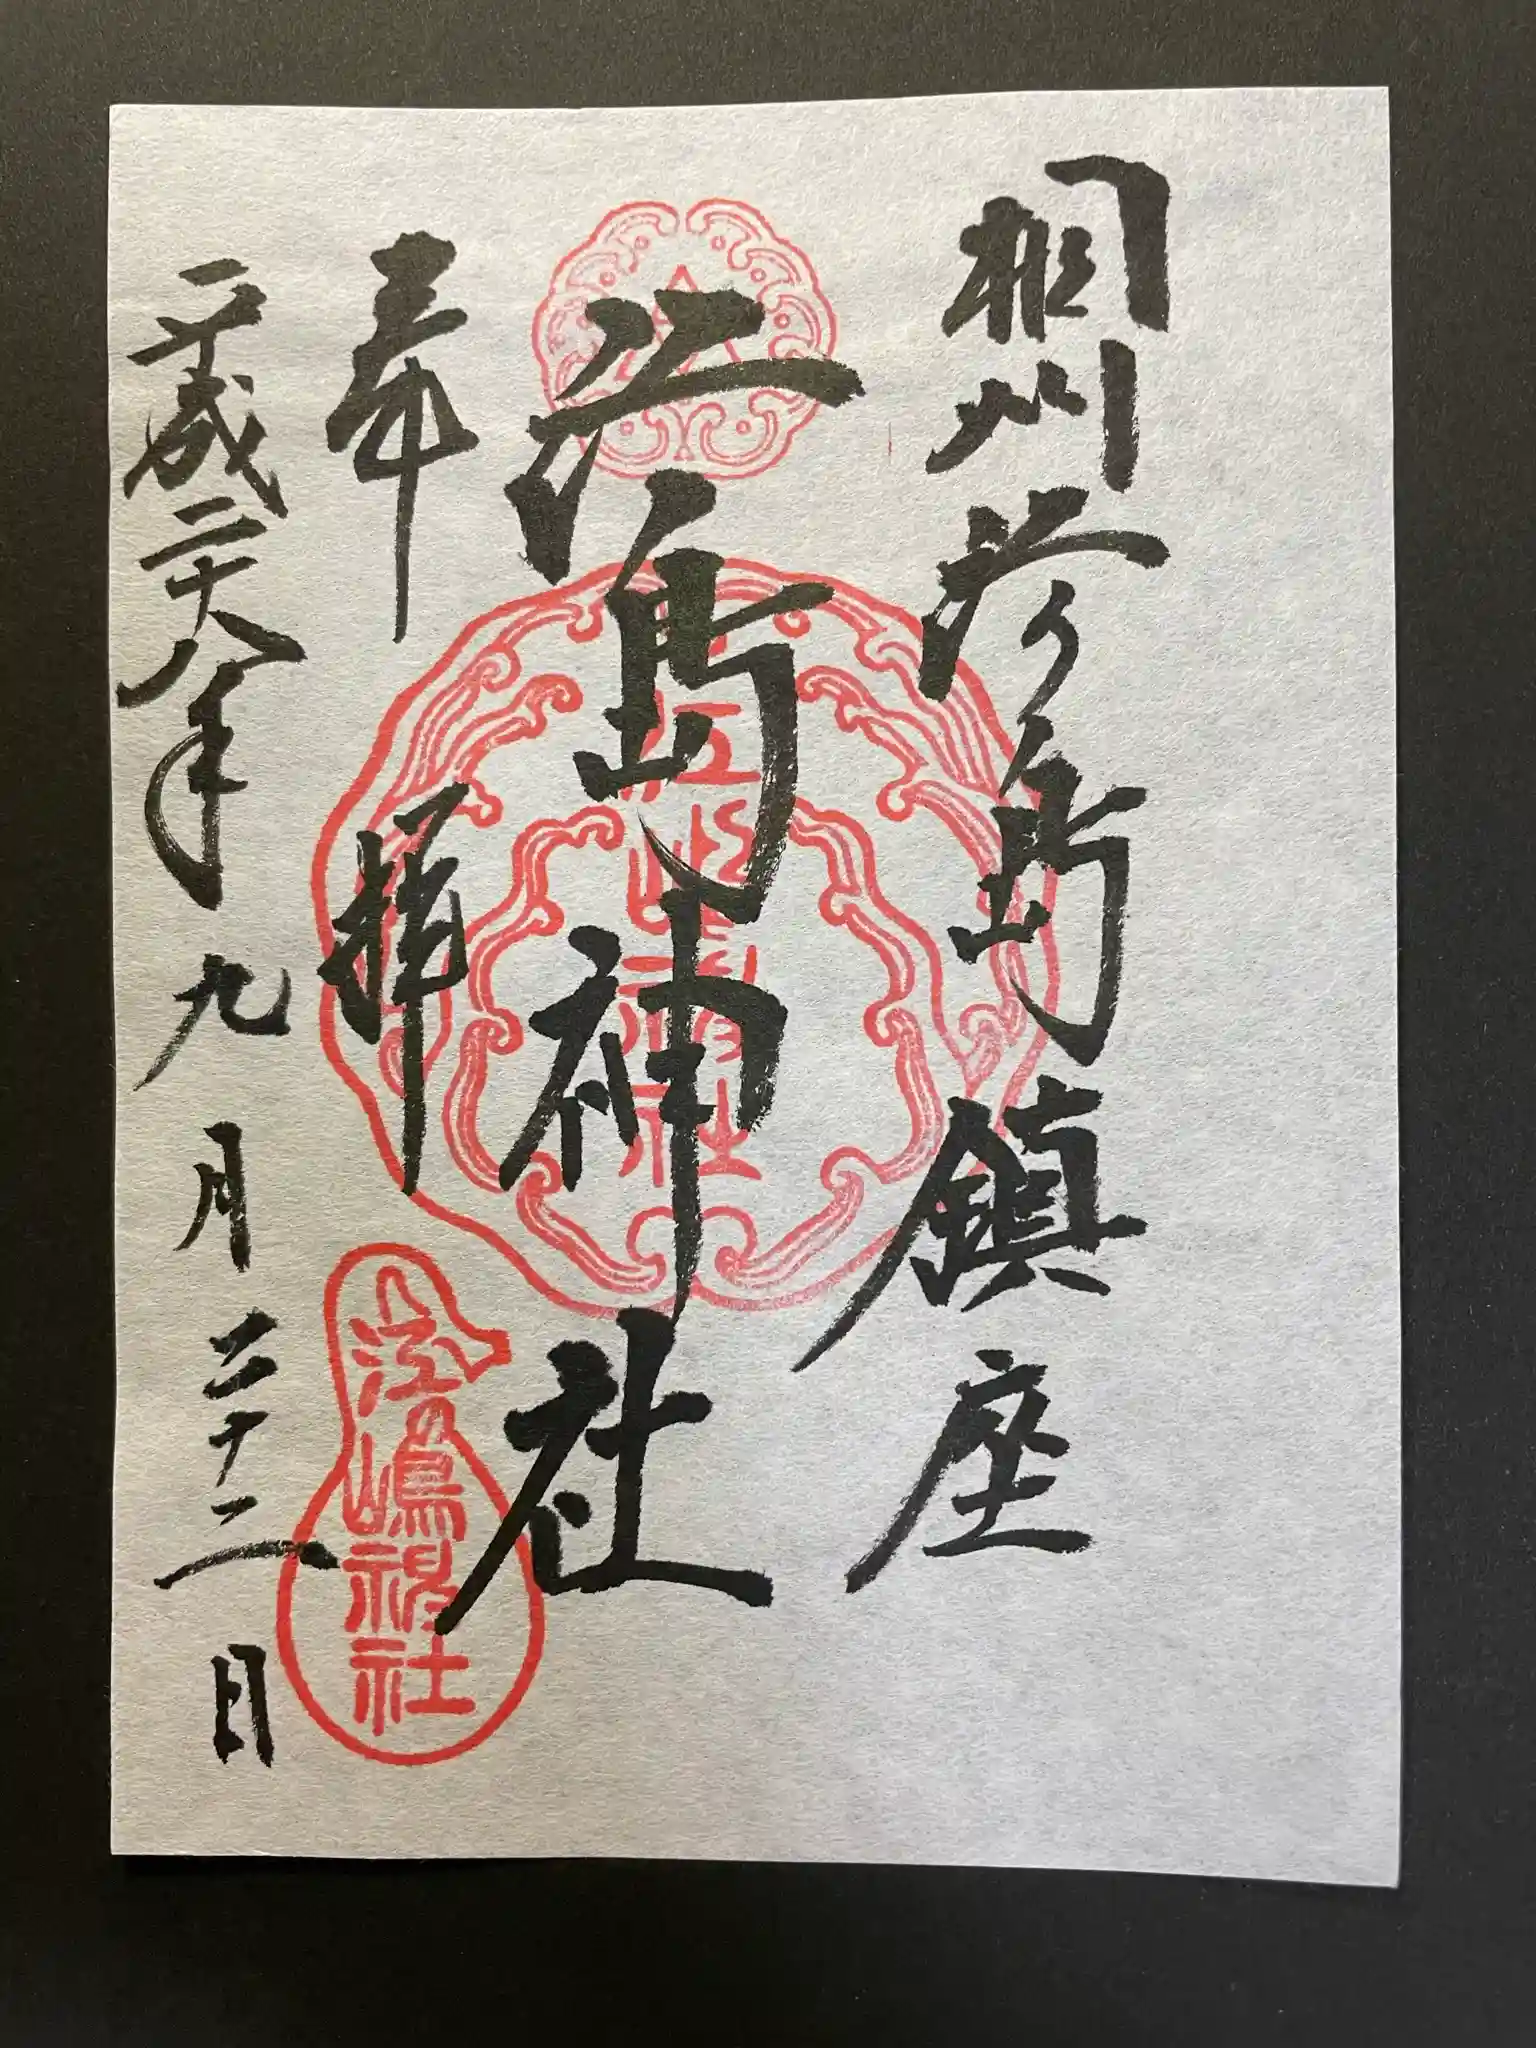 相州江ノ島鎮座
江島神社
奉拝
平成二十八年九月二十二日
江島神社
江の嶋神社